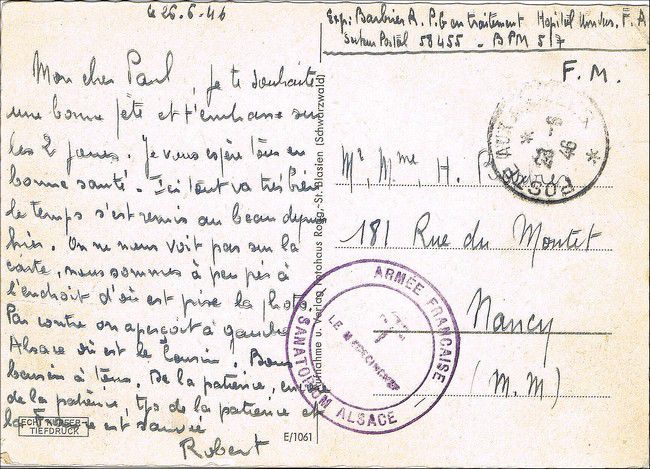 le 26.6.46
Mon cher Paul, je te souhaite
une bonne fête et t'embrasse sur
les 2 joues. Je vous espère tous en
bonne santé. Ici tout va très bien
le temps s'est remis au beau depuis
hier. On ne nous voit pas sur la
carte, nous sommes à peu près à
l'endroit d'où est prise la photo.
Par contre on aperçoit à gauche
Alsace où est le cousin. Bons
baisers à tous. De la patience, encore
de la patience, tjs de la patience et
la est sauvée
Robert
ECHT KUPFER-
TIEFDRUCK
E/1061
Aufnahme u. Verlag Fotohaus Rogg, St. Blasien (Schwarzwald)
Exp: Barbier R. P.G en traitement Hopital F. A
Secteur Postal 58455 - BPM 517
F. M.
POSTE AUX ARMEES
* 28 -6 46 *
Mr, Mme, H.
181 Rue du Montet
Nancy
(M. M)
ARMÉE FRANÇAISE
SANATORIUM ALSACE
LE MEDECIN CHEF